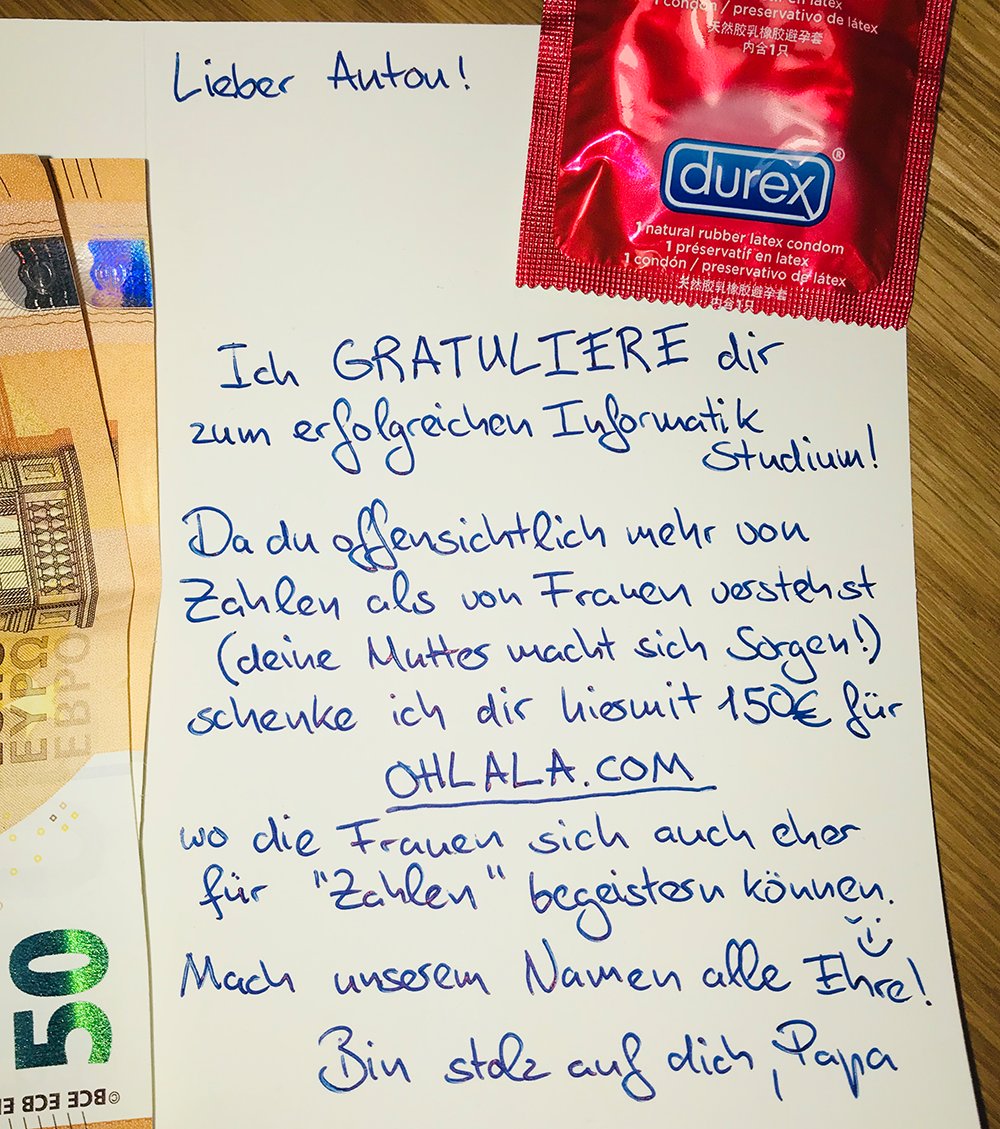 1 condon / preservativo de látex
天然胶乳橡胶避孕套
内含1只
durex®
1 natural rubber latex condom
1 préservatif en latex
1 condón / preservativo de látex
天然胶乳橡胶避孕套
内含1只
Lieber Anton!
Ich GRATULIERE dir
zum erfolgreichen Informatik
Studium!
Da du offensichtlich mehr von
Zahlen als von Frauen verstehst
(deine Mutter macht sich Sorgen!)
schenke ich dir hiermit 150€ für
OHLALA.COM
wo die Frauen sich auch eher
für "Zahlen" begeistern können.
Mach unserem Namen alle Ehre!
Bin stolz auf dich, Papa
ΕΥΡΩ
ЕВРО
50
©BCE ECB